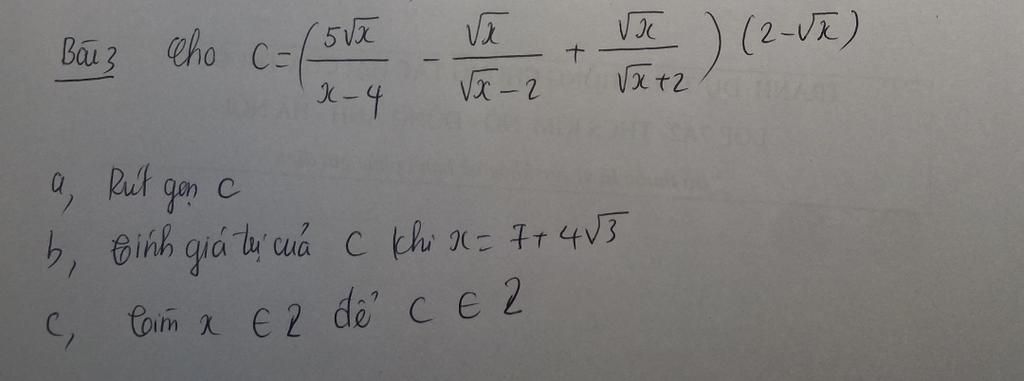 Bài 3 Cho C = (5√x / x - 4 - √x / √x - 2 + √x / √x + 2) (2 - √x)
a, Rút gọn C
b, Tính giá trị của C khi x = 7 + 4√3
c, Tìm x ∈ Z để C ∈ Z